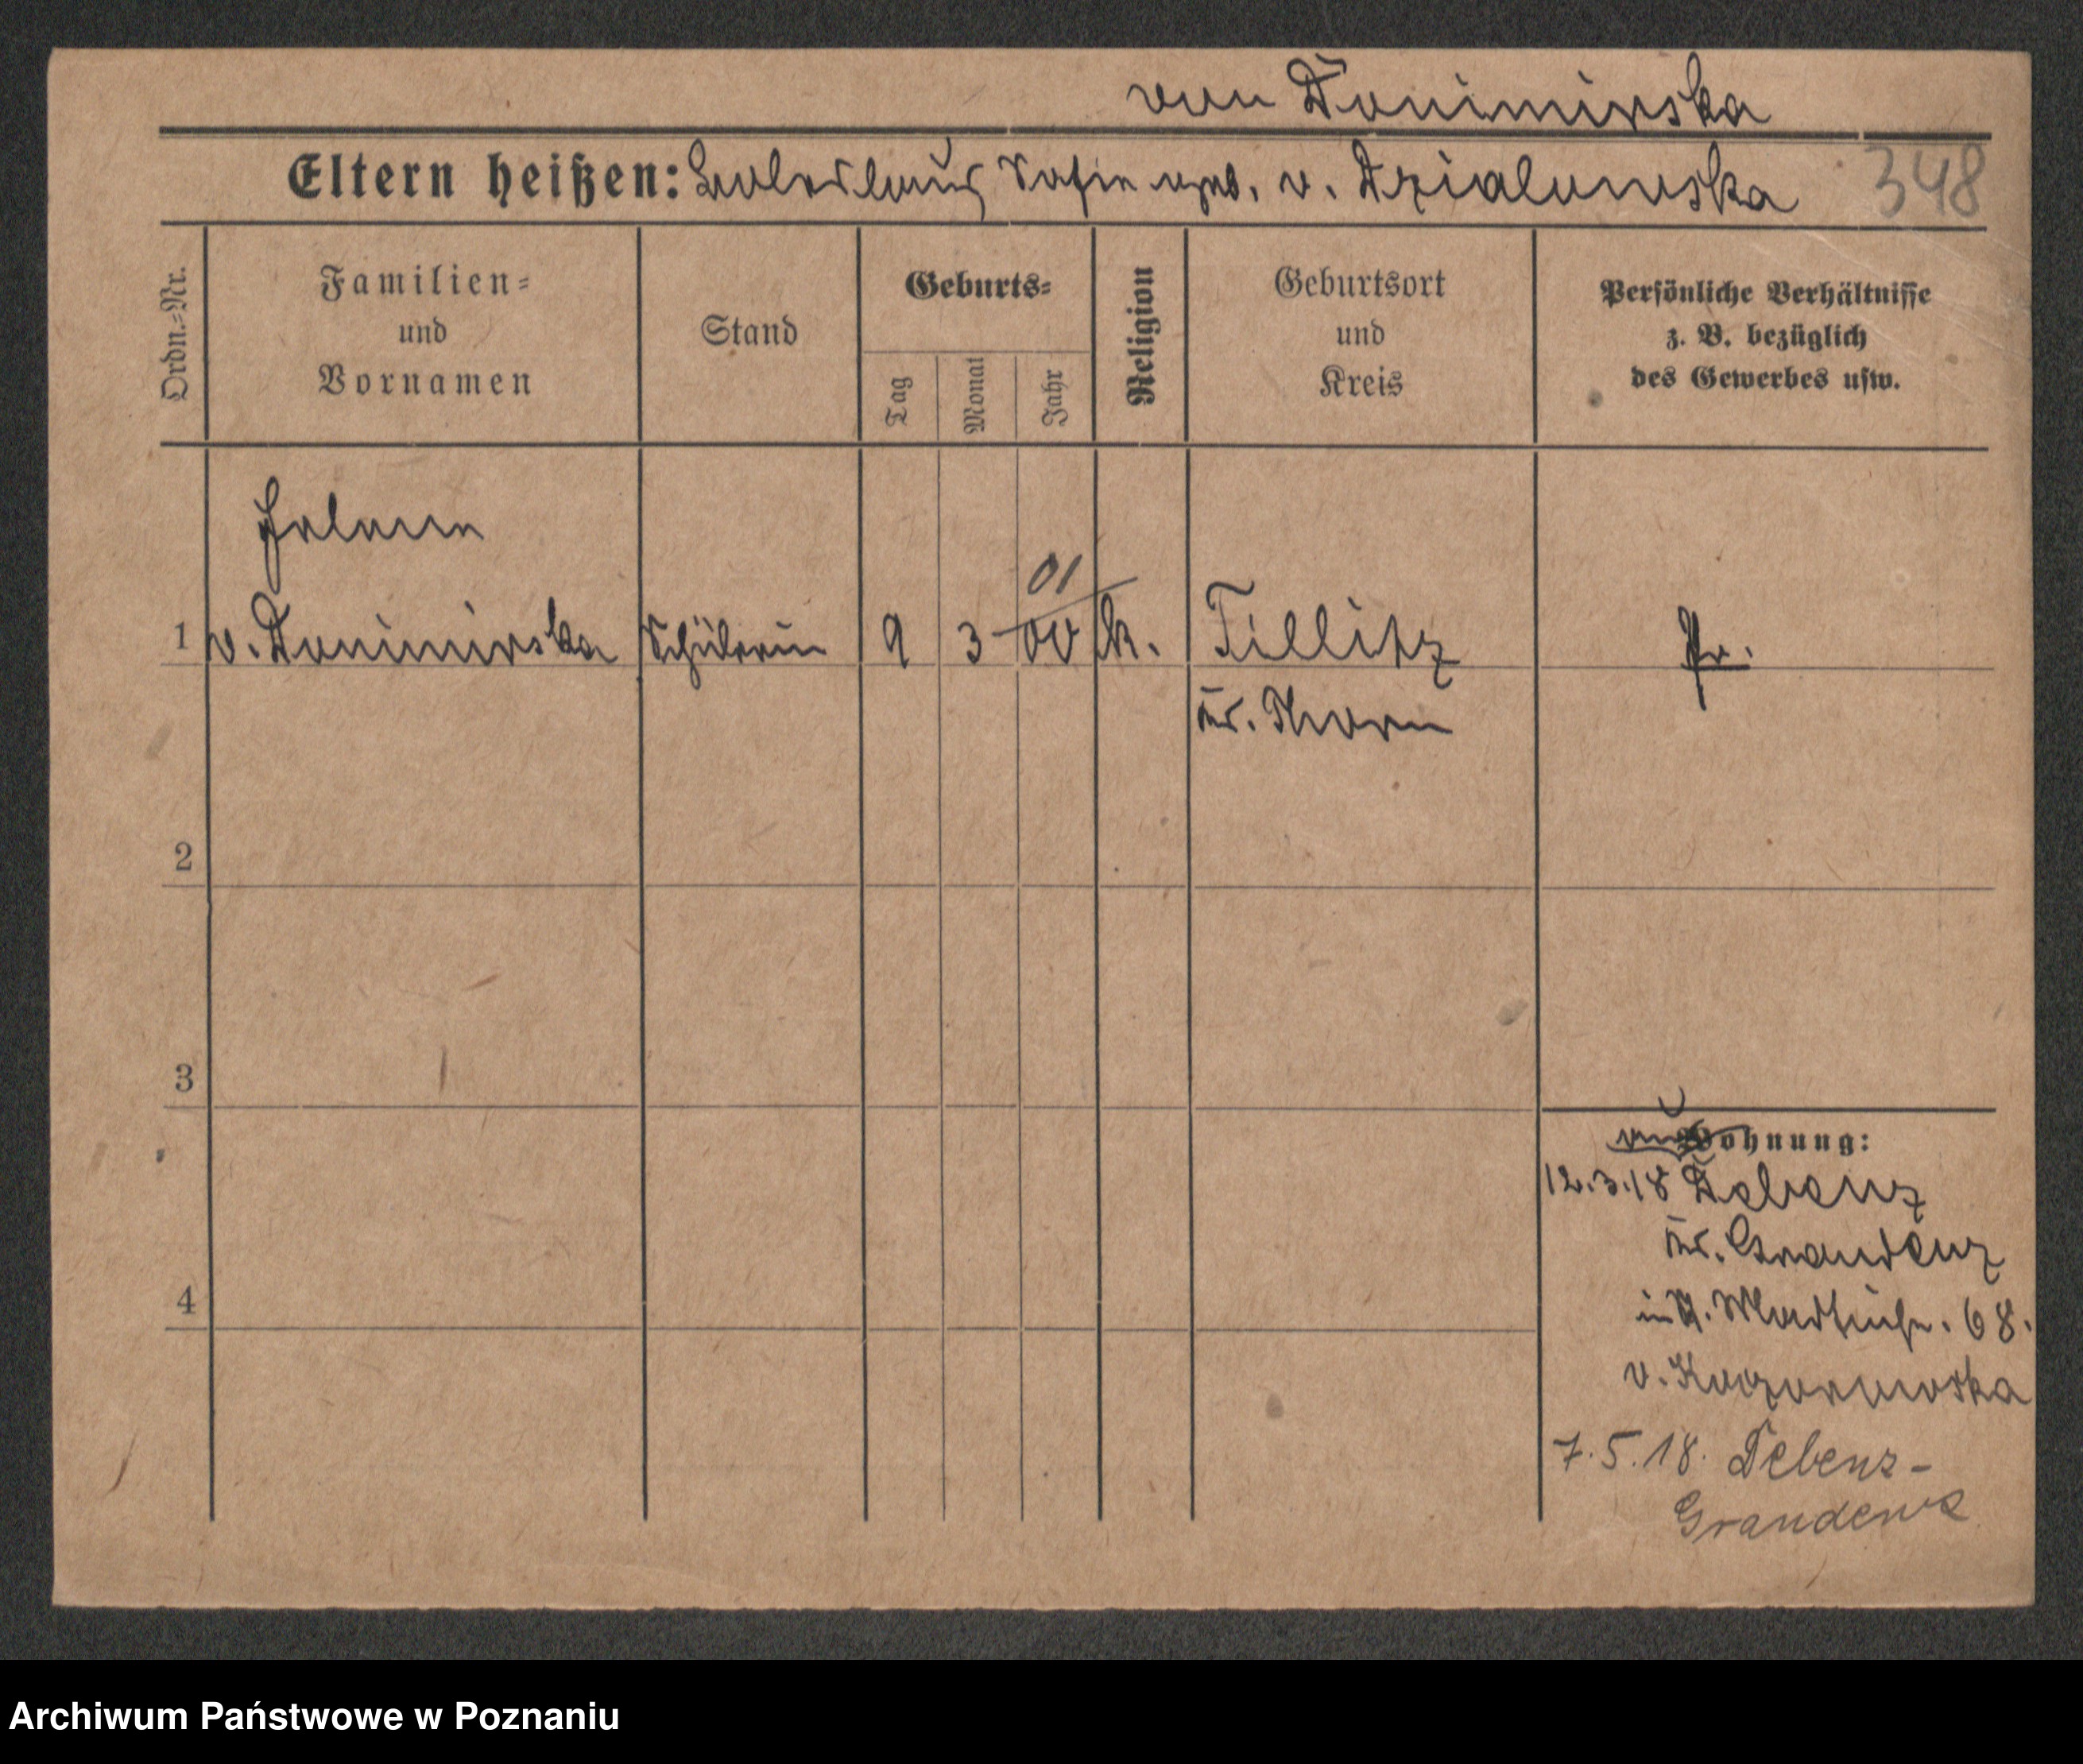 von Donimirska
Eltern heißen: Boleslaus Sofie geb. v. Dzialowska 348
Ordn.-Nr.
Familien-
und
Vornamen
Stand
Geburts-
Tag
Monat
Jahr
Religion
Geburtsort
und
Kreis
Persönliche Verhältnisse
z. B. bezüglich
des Gewerbes usw.
Helene
01
1 v. Donimirska Schülerin 9 3 00 k. Tillitz Pr.
Kr. Thorn
2
3
Wohnung:
12.3.18 Debenz
Kr. Graudenz
4
68.
v. Koczorowska
7.5.18. Debenz-
Graudenz
Archiwum Państwowe w Poznaniu